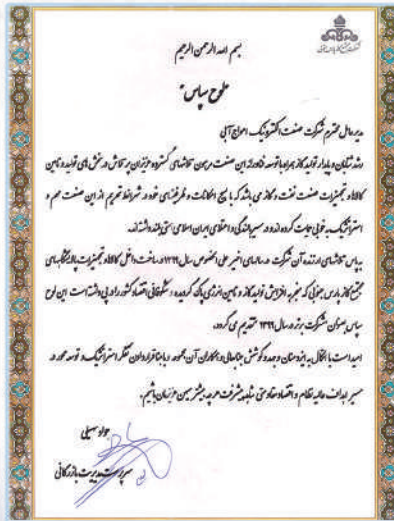 بسم الله الرحمن الرحیم
لوح سپاس
مدیر عامل محترم شرکت صنعت الکترونیک امواج آبی
رشد شتابان و پایدار تولید گاز همراه با توسعه فناورانه این صنعت مرهون تلاشهای گسترده عزیزان پرتلاش در بخش های تولید و تامین
کالاها و تجهیزات صنعت نفت و گاز می باشد که با بسیج امکانات و ظرفیتهای خود در شرایط تحریم از این صنعت مهم و
استراتژیک به خوبی حمایت کرده اند و در مسیر بالندگی و اعتلای ایران اسلامی سعی داشته اند.
به پاس تلاشهای ارزنده آن شرکت در سالهای اخیر علی الخصوص سال ۱۳۹۹ در ساخت داخل کالاها و تجهیزات پالایشگاههای
مجتمع گاز پارس جنوبی که منجر به افزایش تولید گاز و تامین انرژی پاک گردیده و شکوفایی اقتصاد کشور را در پی داشته است این لوح
سپاس بعنوان شرکت برتر در سال ۱۳۹۹ تقدیم می گردد.
امید است با اتکال به ایزد منان و جد و کوشش جنابعالی و همکاران آن مجموعه و با مبنا قرار دادن تفکر استراتژیک و توسعه محور در
مسیر اهداف عالیه نظام و اقتصاد مقاومتی شاهد پیشرفت هر چه بیشتر میهن عزیزمان باشیم.
جواد سهیلی
سرپرست مدیریت بازرگانی